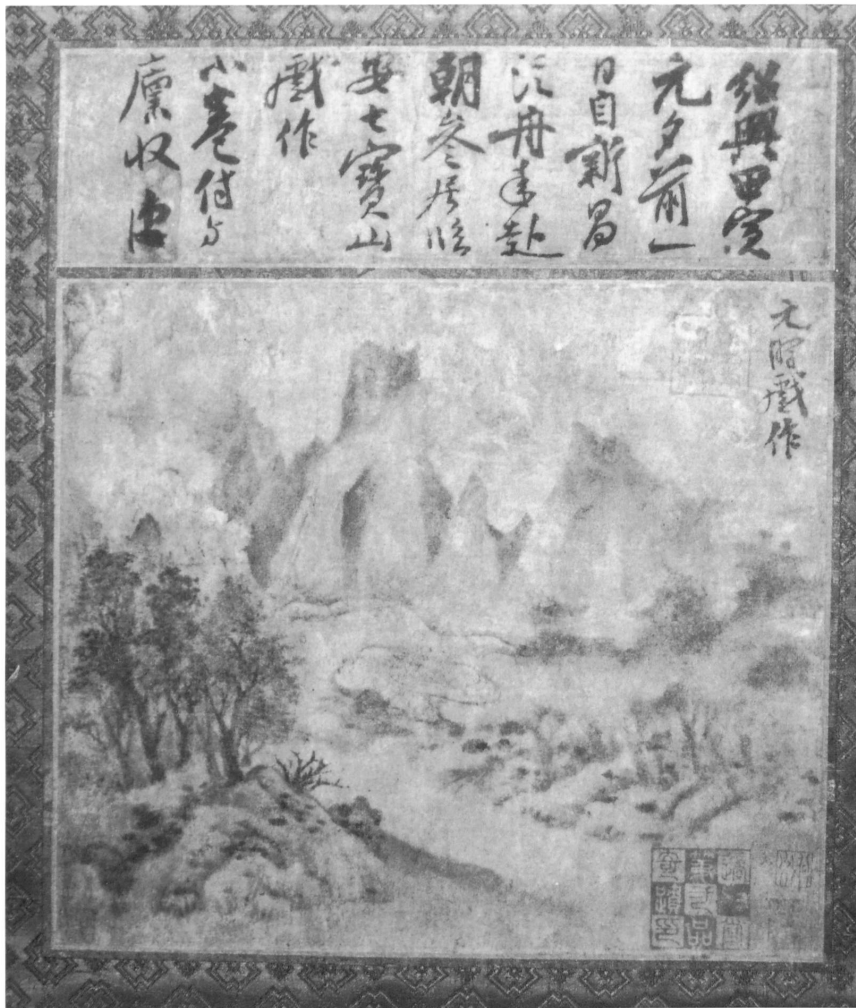 紹興甲寅
元夕前一
日自新昌
泛舟来赴
朝叅居臨
安七寶山
戲作
小卷付与
廩收
元暉戲作